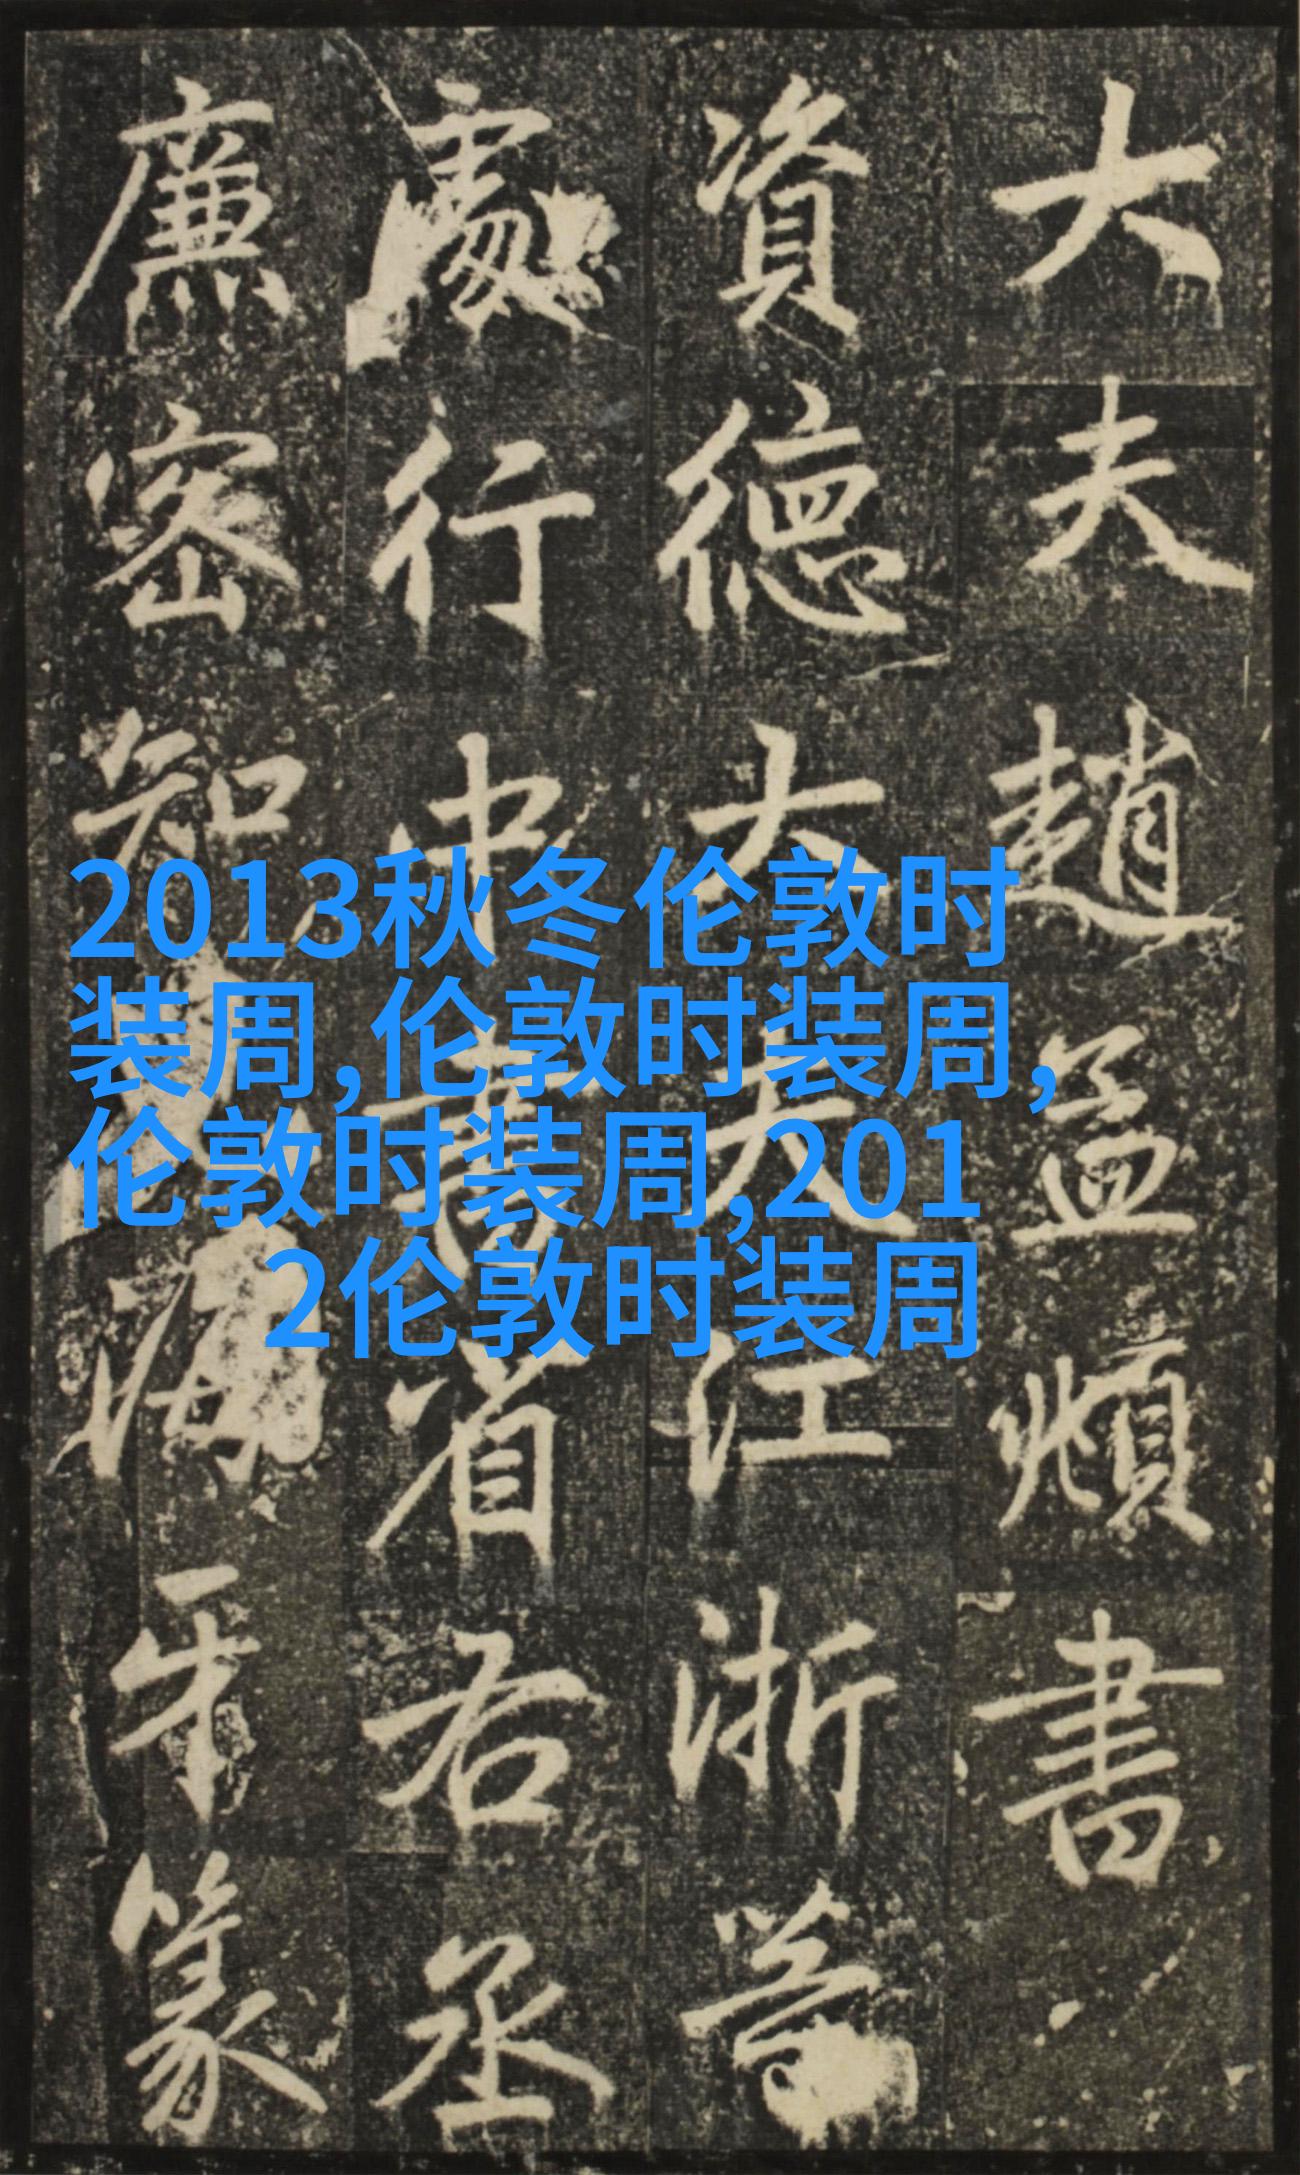 大夫趙孟頫書
資德大夫江浙等
處行中書省右丞
廉密知海牙篆
2013秋冬伦敦时
装周,伦敦时装周,
伦敦时装周,201
2伦敦时装周